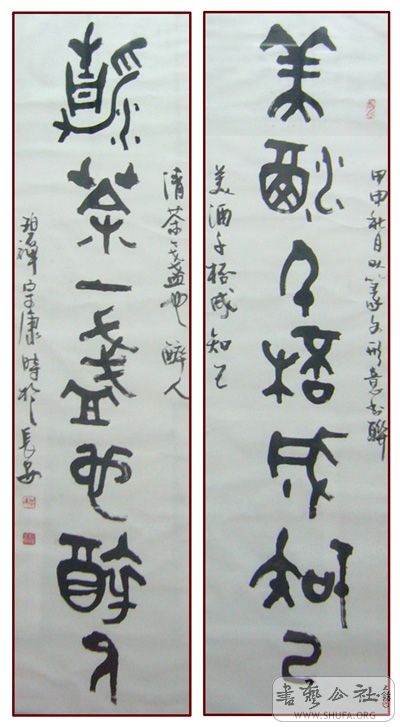 甲申秋月以篆文形意书聯
美酒千杯成知己
美酒千杯成知己
清茶一盏也醉人
清茶一盏也醉人
康時於長安
書藝公社
WWW.SHUFA.ORG